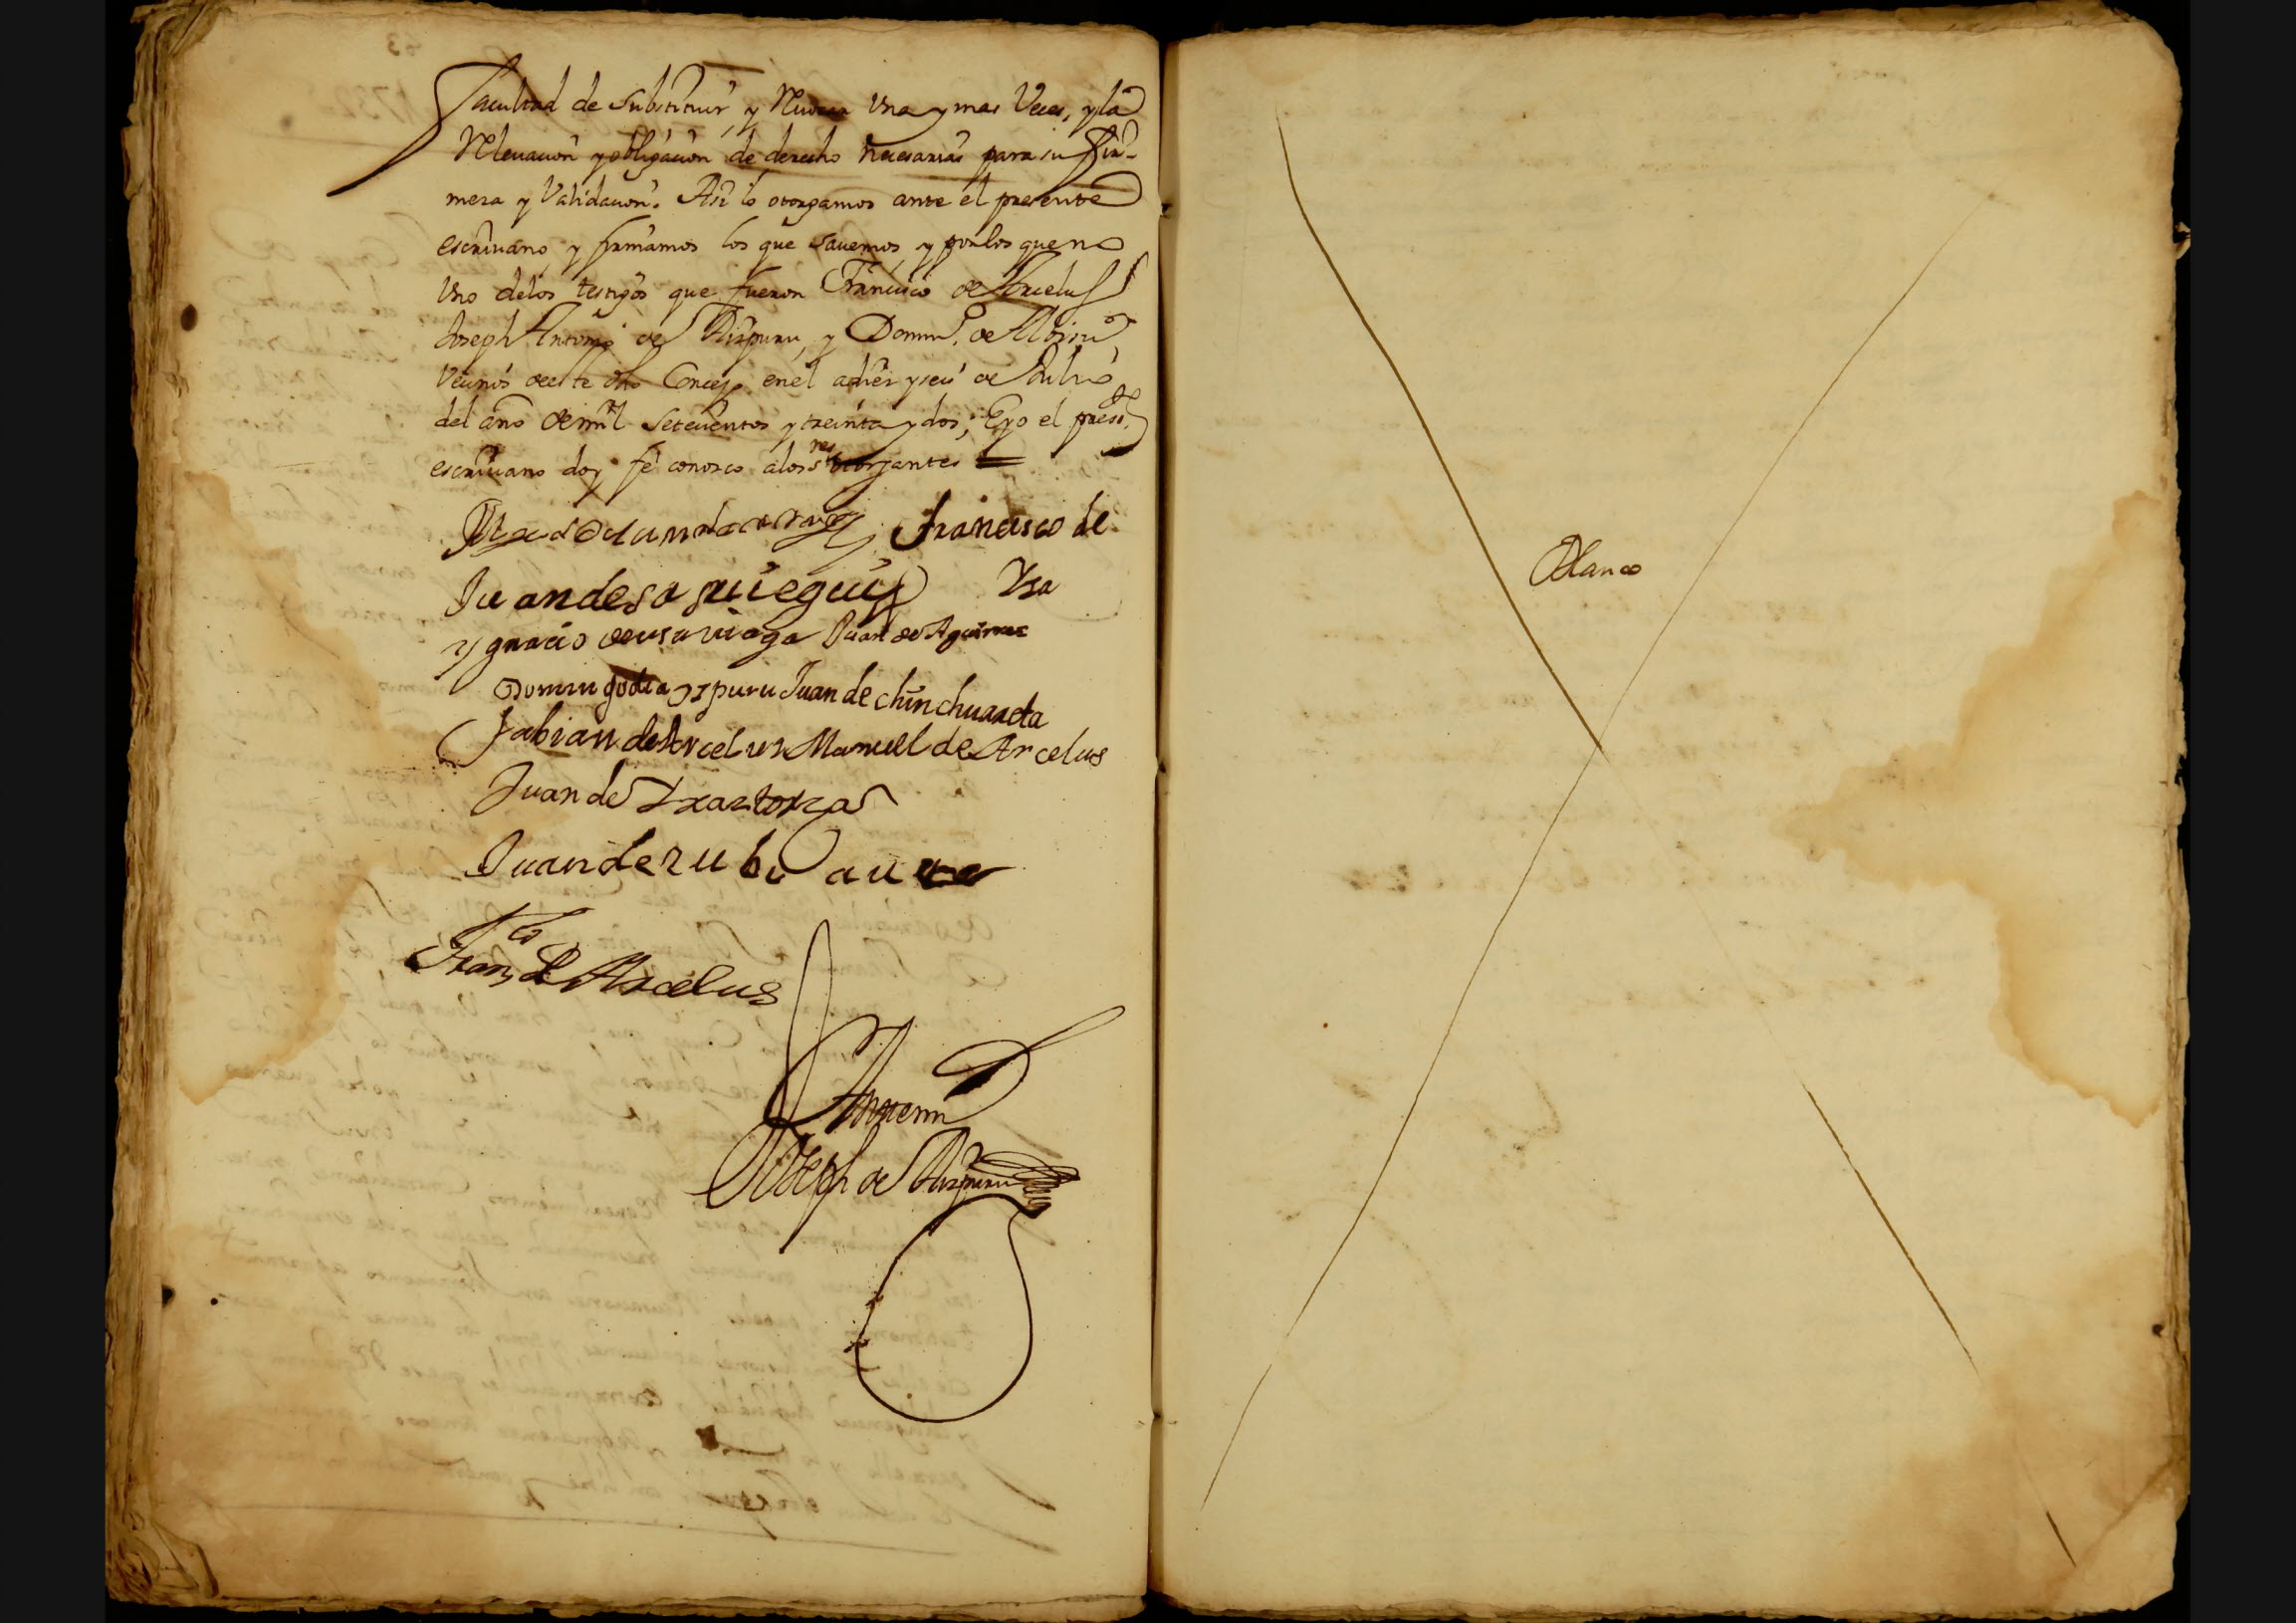 facultad de substituir, y Revocar Una y mas Veces, y la
Relevacion y obligacion de derecho necesarias para su fir-
meza y Validacion. Asi lo otorgamos ante el presente
escrivano y firmamos los que savemos, y por los que no
Uno delos testigos que fueron Francisco de Arcelus
Joseph Antonio de Aizpuru, y Domin.º de
Vecinos de este dho Concejo en él a diez y seis de Julio
del año de mil setecientos y treinta y dos; E yo el press.te
escrivano doy fe conozco alos s.res otorgantes =
Francisco de
Juan de Ysa
Ygnacio de usaviaga Juan de Aguirre
Domingo de aizpuru Juan de chinchurreta
fabian de Arcelus Manuel de Arcelus
Juan de
Juan de
Fran.co de Arcelus
Ante mi
Joseph de Aizpuru
Blanco